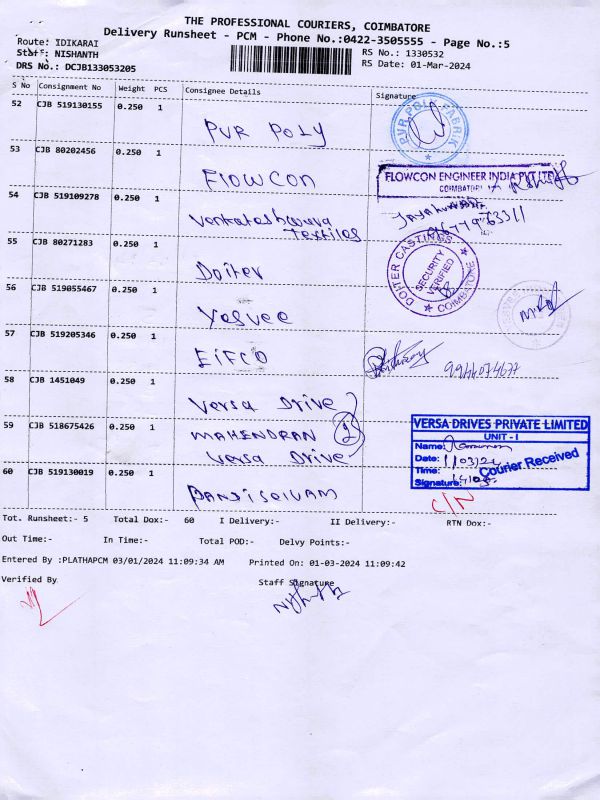 THE PROFESSIONAL COURIERS, COIMBATORE
Delivery Runsheet - PCM - Phone No.:0422-3505555 - Page No.:5
Route: IDIKARAI
RS No.: 1330532
Staff: NISHANTH
RS Date: 01-Mar-2024
DRS No.: DCJB133053205
S No Consignment No Weight PCS Consignee Details Signature
52 CJB 519130155 0.250 1 PVR POLY
PVR POLY FABRIK
53 CJB 80202456 0.250 1 Flowcon
FLOWCON ENGINEER INDIA PVT LTD
COIMBATORE
54 CJB 519109278 0.250 1 Venkateshwara
Textiles
55 CJB 80271283 0.250 1 Doiter
DOITER CASTINGS
SECURITY
VERIFIED
COIMBATORE
56 CJB 519055467 0.250 1 Yesvee
57 CJB 519205346 0.250 1 EIFCO
9944074677
58 CJB 1451049 0.250 1 Versa Drive
59 CJB 518675426 0.250 1 MAHENDRAN 2
Versa Drive
VERSA DRIVES PRIVATE LIMITED
UNIT - I
Name:
Date: 1/03/24
Time:
Courier Received
Signature:
60 CJB 519130019 0.250 1 PANJISELVAM
C/N
Tot. Runsheet:- 5 Total Dox:- 60 I Delivery:- II Delivery:- RTN Dox:-
Out Time:- In Time:- Total POD:- Delvy Points:-
Entered By :PLATHAPCM 03/01/2024 11:09:34 AM Printed On: 01-03-2024 11:09:42
Verified By Staff Signature